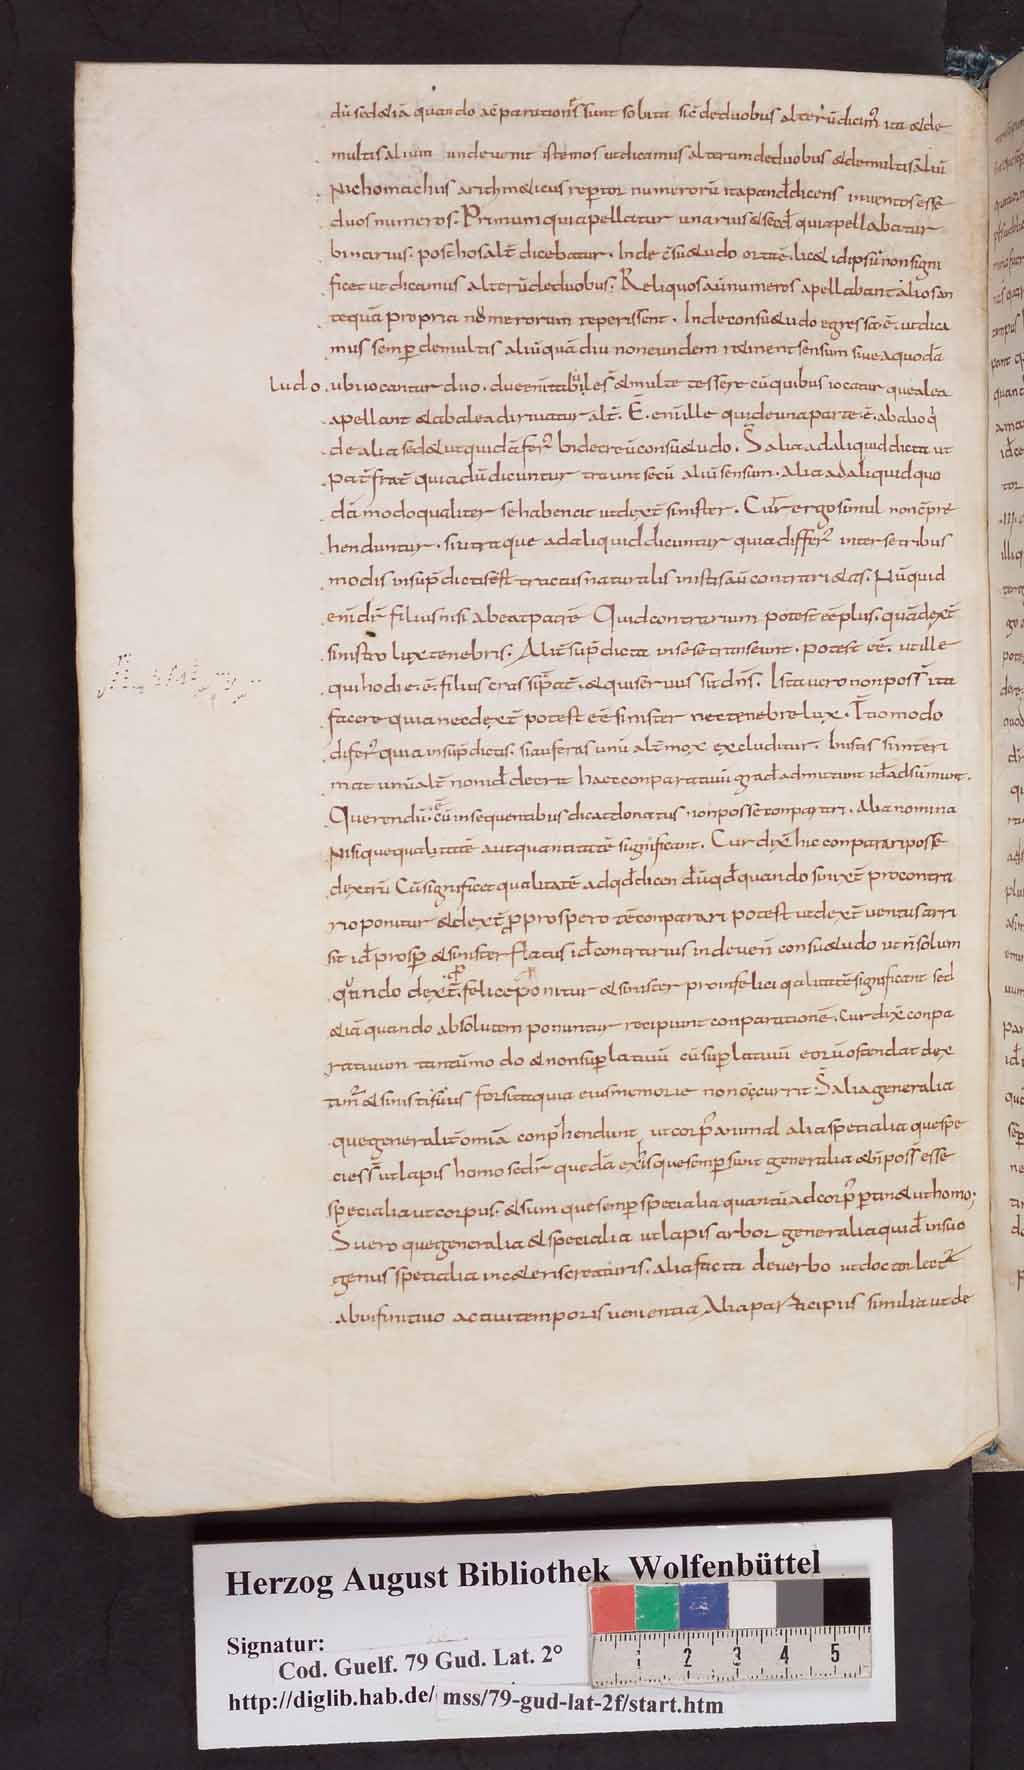 dū sed &iā quando aē parationˢ sunt solita sic̄ deduobus alterū dicimꝰ ita &de
multis alium undeuenit iste mos utdicamus alterum deduobus &demultis aliū
Nichomachus arithm&icus rep̄tor numerorū ita pand̄ dicens inventos esse
duos numeros. Primum qui apellatur unarius &secd̄ qui apellabatur
binarius. post hos alt̄ dicebatur. Inde c̄su&udo orta ē. lic& id ipsū non signi
ficet ut dicamus alterū deduobus. Reliquos aū numeros apellabant alios an
tequā propria numerorum reperissent. Inde consu&udo egressa. ē. ut dica
mus semp̄ demultis aliū quādiu non eundem r&inent sensum siue aquodā
ludo. ubi iocantur duo. &multe tessere cū quibus iocatur que alea
apellant &abalea diriuatur alt̄. Ē. enī ille qui deuna parte. ē. ab alio q̄
de alia sed &utquidā ferꝰ Inde creū consu&udo. S̄ alia ad aliquid dicta ut
pat̄ frat̄ qui adū dicuntur traunt secū aliū sensum. Alia ad aliquid quo
dā modo qualiter se habencia ut dext̄ sinister. Cur̄ ergo simul non c̄pre
henduntur. si utraque ad aliquid dicuntur quia differꝰ inter se tribus
modis in sup̄ dictis est tractus naturalis in istis aū contrari&as. Nūquid
enī dr̄ filius nisi abeat patrē Quid contrarium potest eē plus. quā dext̄
sinistro lux tenebris. Alit̄ sup̄dicta in sese transeunt. potest eē. ut ille
qui hodie. ē. filius cras sit pat̄. &qui seruus sit dn̄s. Ista uero non poss̄ ita
facere quia nec dext̄ potest eē sinister nec tenebre lux. T̄tio modo
diferꝰ quia in sup̄ dictis. si auferas unū alt̄ mox excluditur. In istis si interi
mat unū alt̄ non id̄ deerit haec conparatiuū grad̄ admittunt id̄ adsumunt.
Querendū. cū insequentibus dicat donatus. non posse conparari. Alia nomina
Nisi que qualitatē aut quantitatē significant. Cur dix̄ hic conparari posse
dextrū Cū significet qualitatē ad qd̄ dicen dū qd̄ quando sinixt̄ pro contra
rio ponitur &dext̄ p̄ prospero tc̄ conparari potest ut dext̄ uentus arri
sit id̄ prosp̄ &sinister flatus id̄ contrarius inde uen̄ consu&udo ut n̄ solum
quando dext̄. felice ponitur &sinister pro infelici qualitatē significant sed
&iā quando absolutem ponuntur recipiunt conparationē. Cur dix̄ conpa
ratiuum tantūmodo &non suplatiuū cū suplatiuū eorū ostendat dex
timꝰ &sinistimus forsita quia eius memorie non occurrit. S̄ alia generalia
que generalit̄ omiā conp̄hendunt ut corpꝰ animal alia specialia que spe
cies s̄ ut lapis homo sed dr̄ quedā ex his que semp̄ sunt generalia &n̄ poss̄ esse
specialia ut corpus. &sum que semp̄ specialia quantū ad corpꝰ ptin& ut homo;
S̄ uero que generalia &specialia ut lapis arbor generalia quid̄ in suo
genus specialia in c&eris creaturis. alia facta de uerbo ut doctor lector
ab infinitiuo actiui temporis uenientia Alia participiis similia ut de
Herzog August Bibliothek Wolfenbüttel
Signatur:
Cod. Guelf. 79 Gud. Lat. 2°
http://diglib.hab.de/ mss/79-gud-lat-2f/start.htm
1 2 3 4 5